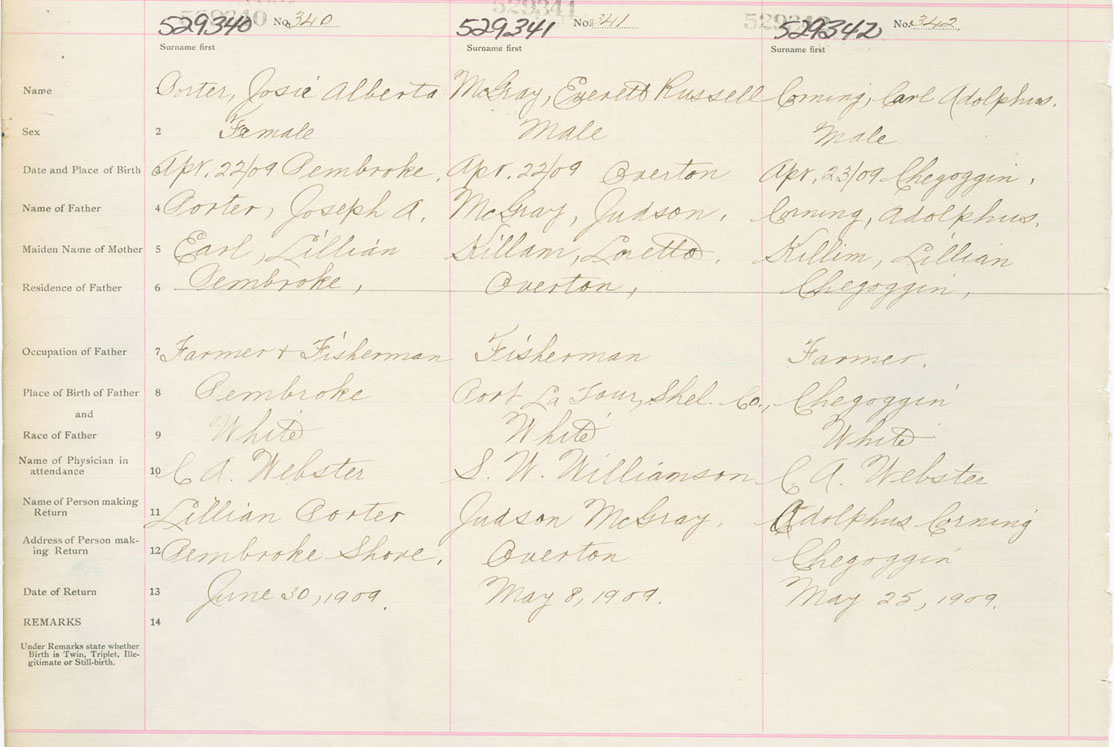 529340 No. 340 529341 No. 341 529342 No. 342
Surname first Surname first Surname first
Name 1 Porter, Josie Alberta McGray, Everett Russell Corning, Carl Adolphus.
Sex 2 Female Male Male
Date and Place of Birth 3 Apr. 22/09 Pembroke. Apr. 22/09 Overton Apr. 23/09 Chegoggin.
Name of Father 4 Porter, Joseph A. McGray, Judson. Corning, Adolphus.
Maiden Name of Mother 5 Earl, Lillian Killam, Loretta. Killim, Lillian
Residence of Father 6 Pembroke, Overton, Chegoggin,
Occupation of Father 7 Farmer & Fisherman Fisherman Farmer.
Place of Birth of Father 8 Pembroke Port La Tour, Shel. Co., Chegoggin
and
Race of Father 9 White White White
Name of Physician in
attendance 10 C A. Webster S. W. Williamson C A. Webster
Name of Person making
Return 11 Lillian Porter Judson McGray. Adolphus Corning
Address of Person mak-
ing Return 12 Pembroke Shore. Overton Chegoggin
Date of Return 13 June 30, 1909. May 8, 1909. May 25, 1909.
REMARKS 14
Under Remarks state whether
Birth is Twin, Triplet, Ille-
gitimate or Still-birth.